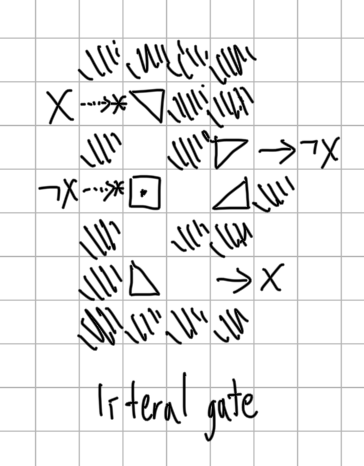 X
→ ¬X
¬X
→ X
literal gate